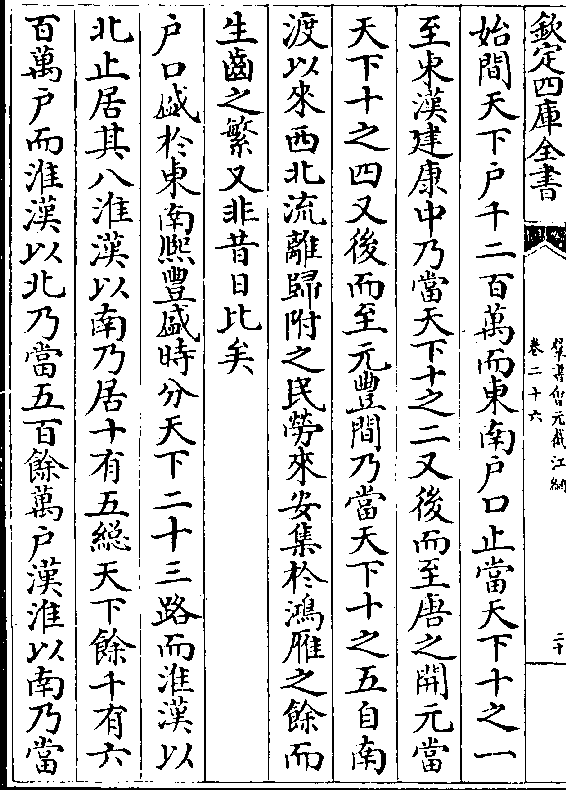 欽定四庫全書
羣書會元截江網
卷二十六
二十
始間天下户千二百萬而東南户口止當天下十之一
至東漢建康中乃當天下十之二又後而至唐之開元當
天下十之四又後而至元豐間乃當天下十之五自南
渡以來西北流離歸附之民勞來安集於鴻雁之餘而
生齒之繁又非昔日比矣
户口盛於東南熈豐盛時分天下二十三路而淮漢以
北止居其八淮漢以南乃居十有五総天下餘千有六
百萬户而淮漢以北乃當五百餘萬户漢淮以南乃當